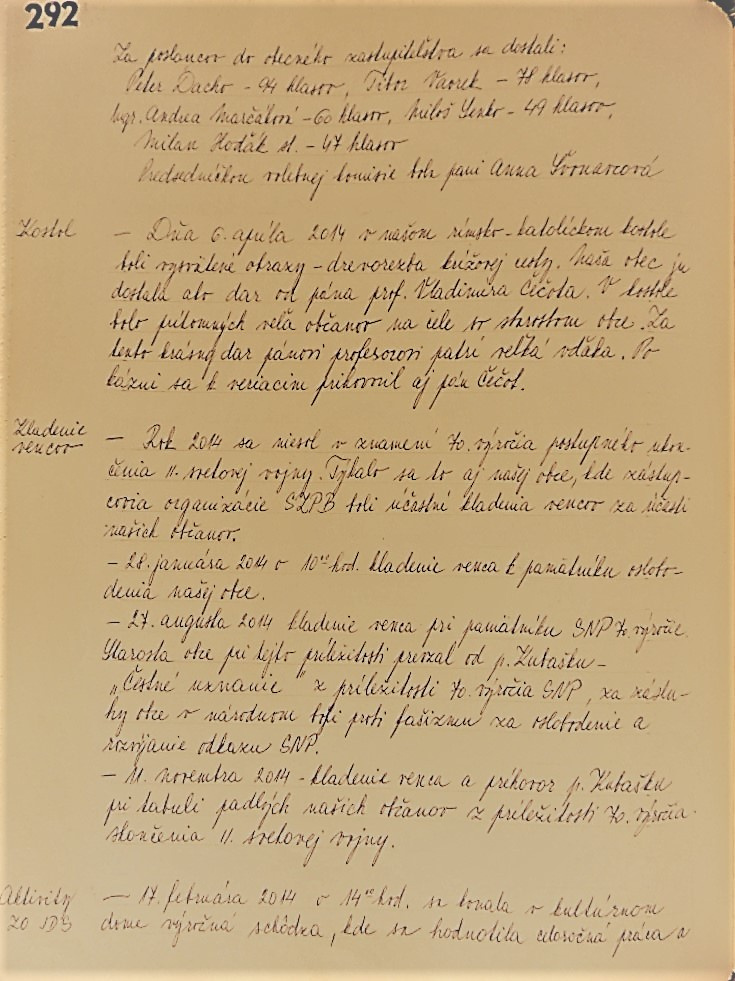 292
Za poslancov do obecného zastupiteľstva sa dostali:
Peter Dacho - 94 hlasov, Tibor Vavrek - 78 hlasov,
Mgr. Andrea Marčáková - 60 hlasov, Miloš - 49 hlasov,
Milan Hodák st. - 47 hlasov
Predsedníčkou volebnej komisie bola pani Anna Švonavcová
Kostol
— Dňa 6. apríla 2014 v našom rímsko-katolíckom kostole
boli vysvätené obrazy - drevorezba krížovej cesty. Naša obec ju
dostala ako dar od pána prof. Vladimíra Čečota. V kostole
bolo prítomných veľa občanov na čele so starostom obce. Za
tento krásny dar pánovi profesorovi patrí veľká vďaka. Po
kázni sa k veriacim prihovoril aj pán Čečot.
Kladenie
vencov
— Rok 2014 sa niesol v znamení 70. výročia postupného ukon-
čenia II. svetovej vojny. Týkalo sa to aj našej obce, kde zástup-
covia organizácie SZPB boli účastní kladenia vencov za účasti
našich občanov.
- 28. januára 2014 o 10°° hod. kladenie venca k pamätníku oslobo-
denia našej obce.
- 27. augusta 2014 kladenie venca pri pamätníku SNP 70. výročie.
Starosta obce pri tejto príležitosti prevzal od p. Kubašku -
„Čestné uznanie" z príležitosti 70. výročia SNP, za záslu-
hy obce v národnom boji proti fašizmu za oslobodenie a
rozvíjanie odkazu SNP.
- 11. novembra 2014 - kladenie venca a príhovor p. Kubašku
pri tabuli padlých našich občanov z príležitosti 70. výročia
skončenia II. svetovej vojny.
Aktivity
ZO JDS
— 17. februára 2014 o 14°° hod. sa konala v kultúrnom
dome výročná schôdza, kde sa hodnotila celoročná práca a